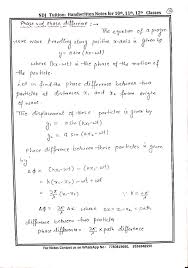 SDJ Tuition: Handwritten Notes for 10th, 11th, 12th Classes
Phase and phase difference :-
The equation of a progre
ssive wave travelling along positive x-axis is given
by
y = a sin(kx-ωt)
where (kx-ωt) is the phase of the motion of
the particle.
Let us find the phase difference between two
particles at distances x₁ and x₂ from origin
of wave
The displacement of these particles is given by
y₁ = a sin(kx₁-ωt)
y₂ = a sin(kx₂-ωt)
phase difference between these particles is given
by
Δϕ = (kx₂-ωt) - (kx₁-ωt)
= k(x₂-x₁) - ωt + ωt
= 2π/λ (x₂-x₁) ∵ k = 2π/λ
Δϕ = 2π/λ Δx where Δx = x₂-x₁ = path
difference between two particle
phase difference = 2π/λ x path difference
For Notes Contact us on WhatsApp No :-